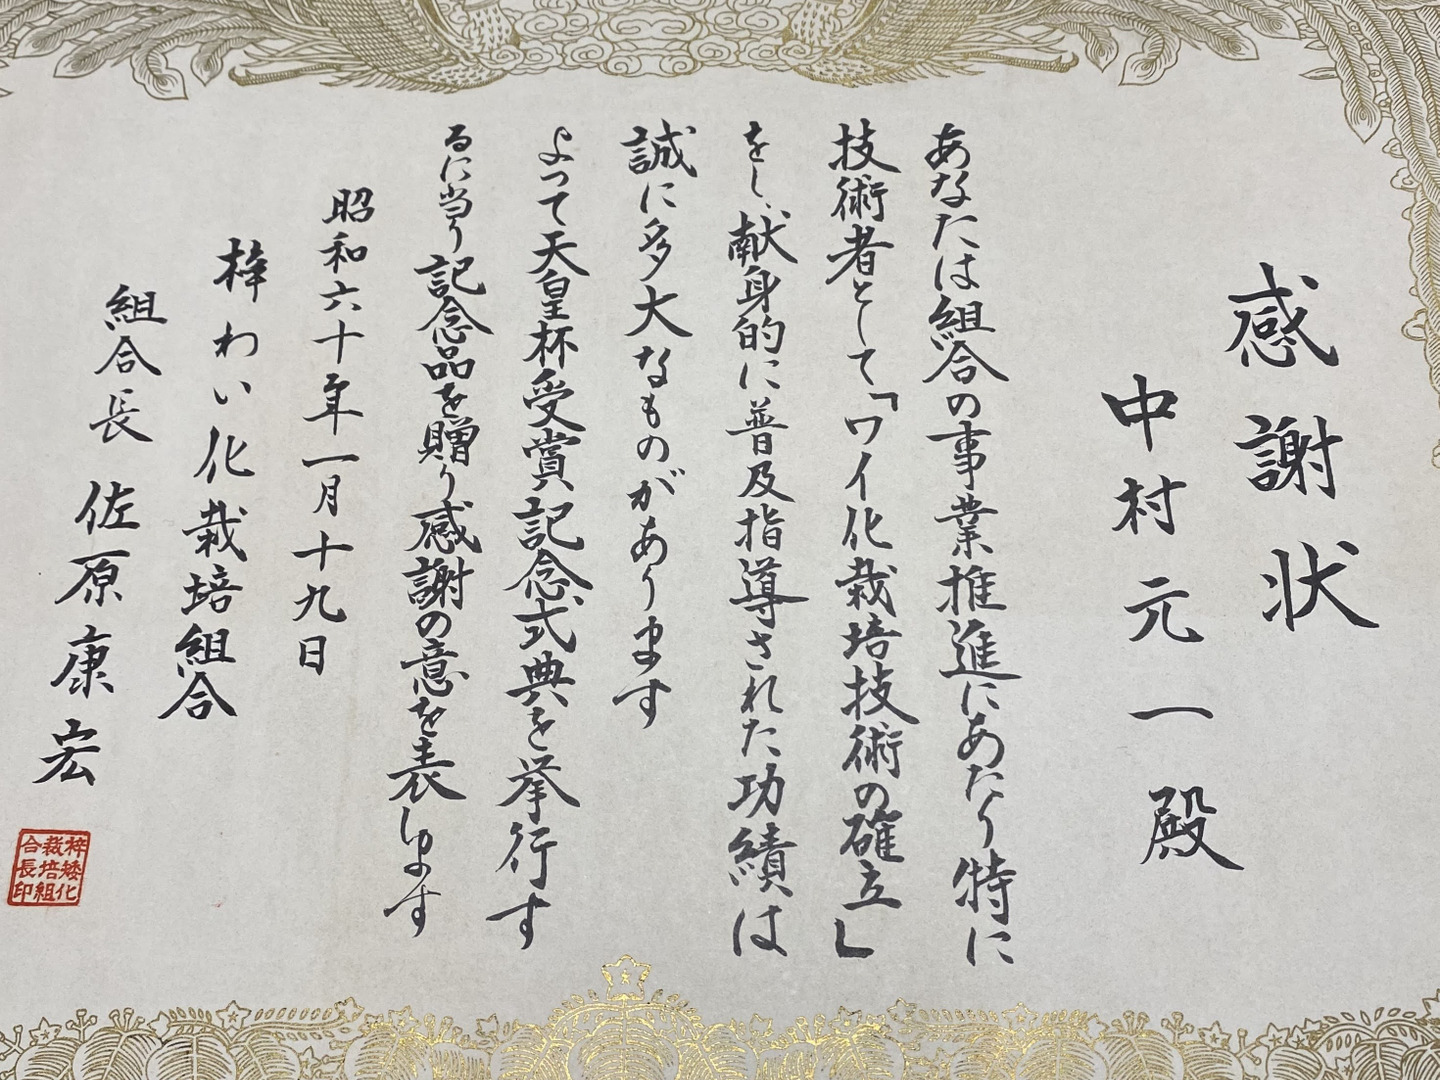 感謝状
中村元一殿
あなたは組合の事業推進にあたり特に
技術者として「ワイ化栽培技術の確立」
をし、献身的に普及指導された功績は
誠に多大なものがあります
よって天皇杯受賞記念式典を挙行す
るに当り記念品を贈り感謝の意を表します
昭和六十年一月十九日
梓わい化栽培組合
組合長 佐原康宏
梓矮化
栽培組
合長印